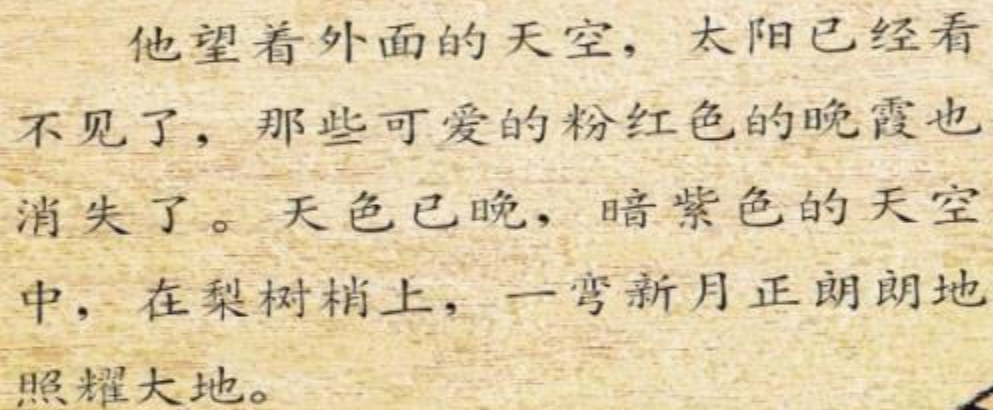 他望着外面的天空，太阳已经看
不见了，那些可爱的粉红色的晚霞也
消失了。天色已晚，暗紫色的天空
中，在梨树梢上，一弯新月正朗朗地
照耀大地。